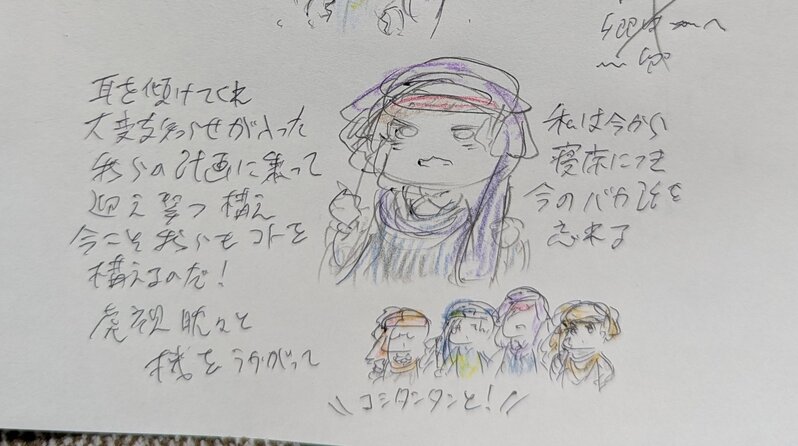 耳を傾けてくれ
大変な知らせが入った
我らの計画に乗って
迎え撃つ構え
今こそ我らもコトを
構えるのだ！
虎視眈々と
機をうかがって
私は今から
寝床につき
今のバカ話を
忘れる
\\コシタンタンと！//